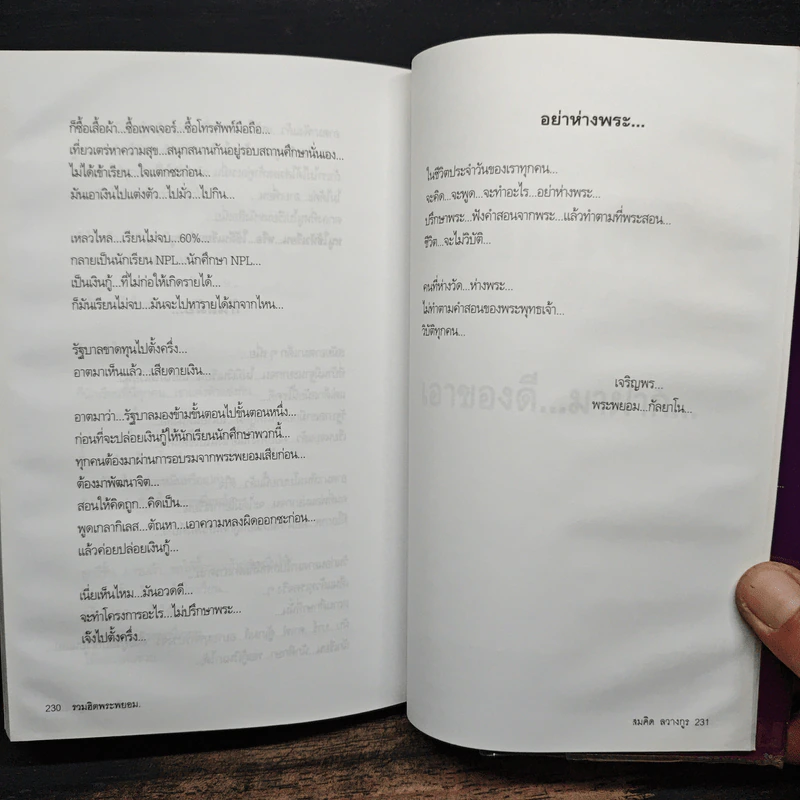 ก็ซื้อเสื้อผ้า...ซื้อเพจเจอร์...ซื้อโทรศัพท์มือถือ...
เที่ยวเตร่หาความสุข...สนุกสนานกันอยู่รอบสถานศึกษานั่นเอง...
ไม่ได้เข้าเรียน...ใจแตกซะก่อน...
มันเอาเงินไปแต่งตัว...ไปมั่ว...ไปกิน...
เหลวไหล...เรียนไม่จบ...60%...
กลายเป็นนักเรียน NPL...นักศึกษา NPL...
เป็นเงินกู้...ที่ไม่ก่อให้เกิดรายได้...
ก็มันเรียนไม่จบ...มันจะไปหารายได้มาจากไหน...
รัฐบาลขาดทุนไปตั้งครึ่ง...
อาตมาเห็นแล้ว...เสียดายเงิน...
อาตมาว่า...รัฐบาลมองข้ามขั้นตอนไปขั้นตอนหนึ่ง...
ก่อนที่จะปล่อยเงินกู้ให้นักเรียนนักศึกษาพวกนี้...
ทุกคนต้องมาผ่านการอบรมจากพระพยอมเสียก่อน...
ต้องมาพัฒนาจิต...
สอนให้คิดถูก...คิดเป็น...
พูดเกลากิเลส...ตัณหา...เอาความหลงผิดออกซะก่อน...
แล้วค่อยปล่อยเงินกู้...
เนี่ยเห็นไหม...มันอวดดี...
จะทำโครงการอะไร...ไม่ปรึกษาพระ...
เจ๊งไปตั้งครึ่ง...
230 รวมฮิตพระพยอม.
อย่าห่างพระ...
ในชีวิตประจำวันของเราทุกคน...
จะคิด...จะพูด...จะทำอะไร...อย่าห่างพระ...
ปรึกษาพระ...ฟังคำสอนจากพระ...แล้วทำตามที่พระสอน...
ชีวิต...จะไม่วิบัติ...
คนที่ห่างวัด...ห่างพระ...
ไม่ทำตามคำสอนของพระพุทธเจ้า...
วิบัติทุกคน...
เจริญพร...
พระพยอม...กัลยาโน...
สมคิด ลวางกูร 231